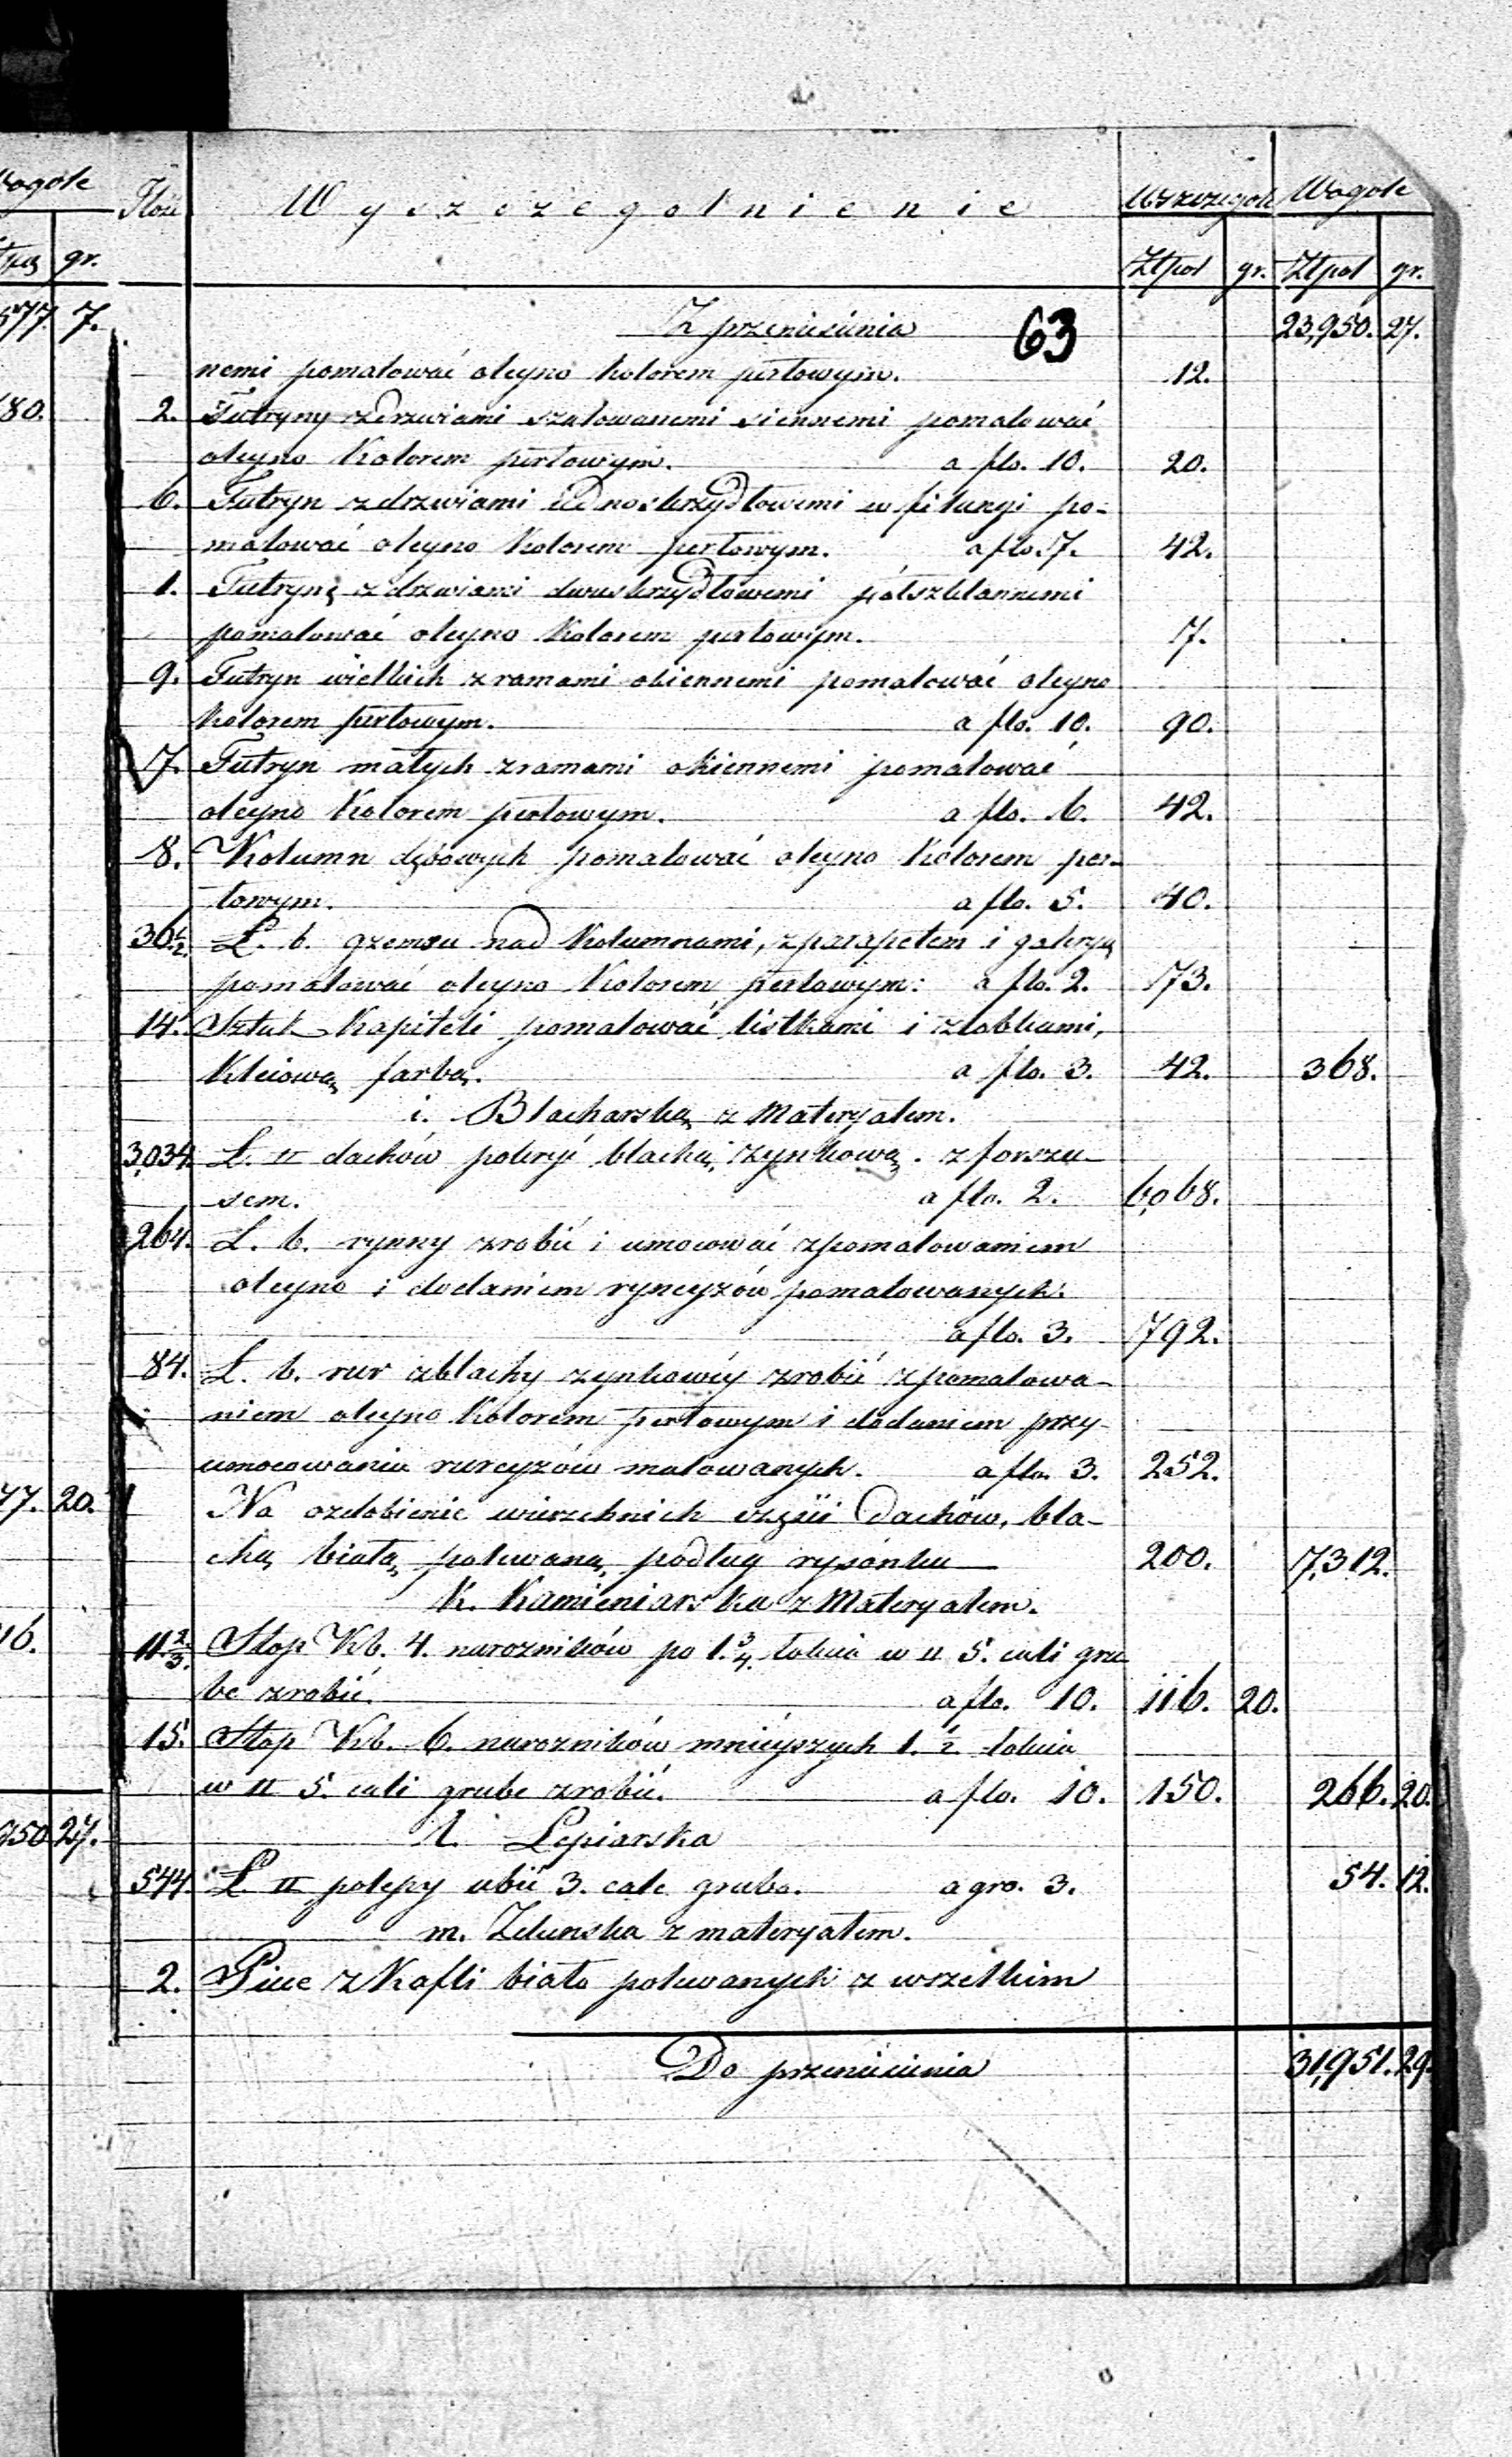 Wogole
gr.
577. 7.
180.
77. 20.
16.
950 27.
Ilość Wyszczegolnienie Wszczegole Wogole
Ztpol gr. Ztpol gr.
Z przeniesienia 63 23,950. 27.
nemi pomalować oleyno kolorem perłowym. 12.
2. Futryny z drzwiami szalowanemi siennemi pomalować
oleyno Kolorem perłowym. a flo. 10. 20.
6. Futryn z drzwiami iednoskrzydłowemi w filungi po-
malować oleyno Kolorem perłowym. a flo. 7. 42.
1. Futrynę z drzwiami dwuskrzydłowemi półszklannemi
pomalować oleyno Kolorem perłowym. 7.
9. Futryn wielkich z ramami okiennemi pomalować oleyno
Kolorem perłowym. a flo. 10. 90.
7. Futryn małych z ramami okiennemi pomalować
oleyno Kolorem perłowym. a flo. 6. 42.
8. Kolumn dębowych pomalować oleyno Kolorem per-
łowym. a flo. 5. 40.
36½ Ł. b. gzemsu nad Kolumnami, z parapetem i galeryą
pomalować oleyno Kolorem perłowym: a flo. 2. 73.
14. Sztuk Kapiteli pomalować listkami i żłobkami,
Kleiową farbą. a flo. 3. 42. 368.
i. Blacharska z Materyałem.
3,034. Ł. □ dachów pokryć blachą zynkową z forszu-
sem. a flo. 2. 6,068.
264. Ł. b. rynny zrobić i umocować z pomalowaniem
oleyno i dodaniem ryneyzów pomalowanych.
a flo. 3. 792.
84. Ł. b. rur z blachy zynkowéy zrobić z pomalowa-
niem oleyno Kolorem perłowym i dodaniem przy
umocowaniu rureyzów malowanych. a flo. 3. 252.
Na ozdobienie wierzchnich części Dachów, bla-
chą białą polewaną, podług rysónku 200. 7,312.
K. Kamieniarska z Materyałem.
11.⅔. Stop Kb. 4. narożników po 1.¾. łokcia w □ 5. cali gru-
be zrobić. a flo. 10. 116. 20.
15. Stop Kb. 6. narożników mnieyszych 1.½ łokcia
w □ 5. cali grube zrobić. a flo. 10. 150. 266. 20.
l. Lepiarska
544. Ł. □ polepy ubić 3. cale grubo. a gro. 3. 54. 12.
m. Zduńska z materyałem.
2. Piece z Kafli biało polewanych z wszelkim
Do przeniesienia 31,951. 29.